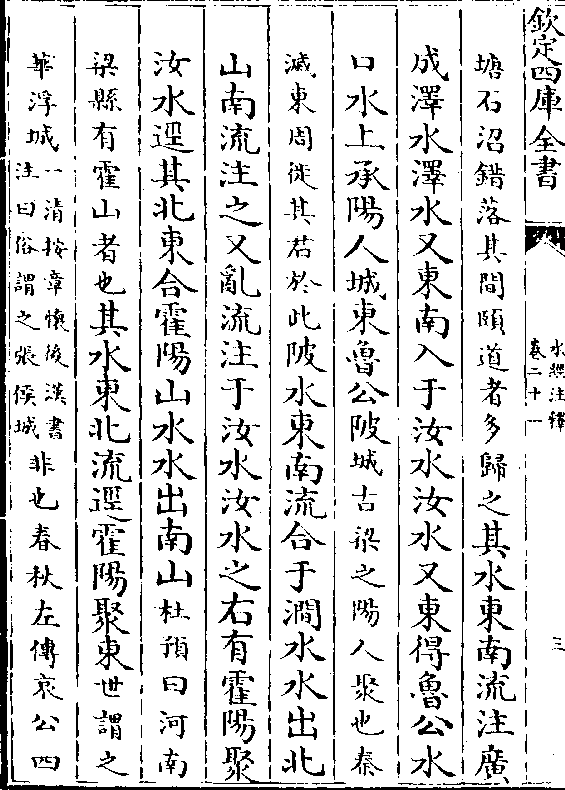 欽定四庫全書
水經注釋
卷二十一
三
塘石沼錯落其間頤道者多歸之其水東南流注廣
成澤水澤水又東南入于汝水汝水又東得魯公水
口水上承陽人城東魯公陂城古梁之陽人聚也秦
滅東周徙其君於此陂水東南流合于澗水水出北
山南流注之又亂流注于汝水汝水之右有霍陽聚
汝水逕其北東合霍陽山水水出南山杜預曰河南
梁縣有霍山者也其水東北流逕霍陽聚東世謂之
華浮城一清按章懷後漢書
注曰俗謂之張侯城非也春秋左傳哀公四